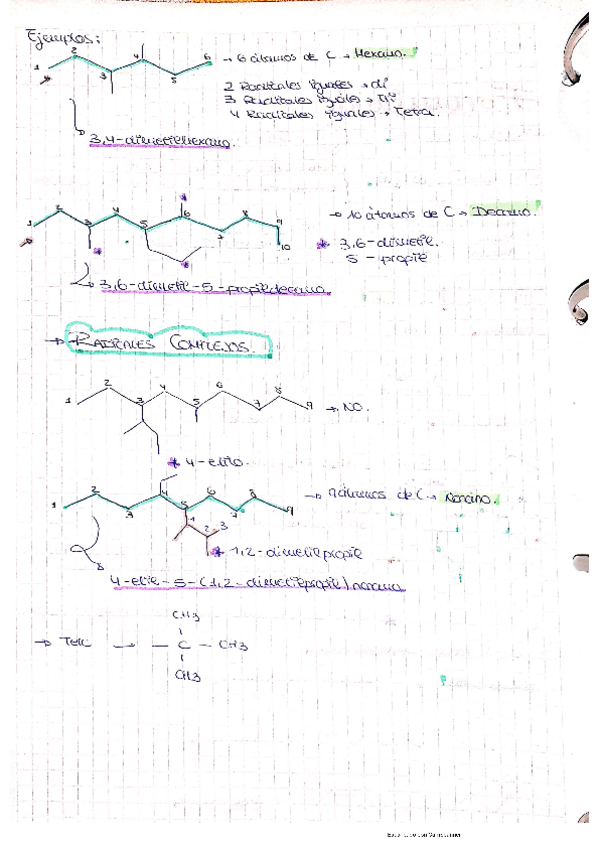 Ejemplos:
1 2 3 4 5 6 → 6 átomos de C → Hexano.
2 Radicales iguales → di
3 Radicales iguales → Tri
4 Radicales iguales → Tetra.
3,4-dimetilhexano.
1 2 3 4 5 6 7 8 9 10 → 10 átomos de C → Decano.
* 3,6-dimetil.
5-propil
3,6-dimetil-5-propildecano.
→ RADICALES COMPLEJOS.
1 2 3 4 5 6 7 8 9 → NO.
* 4-etilo.
1 2 3 4 5 6 7 8 9 → 9 átomos de C → Nonano.
1 2 3
* 1,2-dimetilpropil
4-etil-5-(1,2-dimetilpropil)nonano
CH3
→ Terc → — C — CH3
CH3